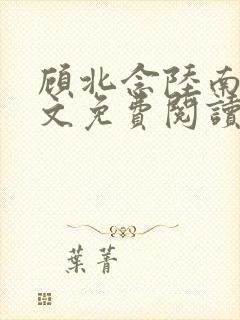 顧北念陸南
文免費閱讀
葉菁